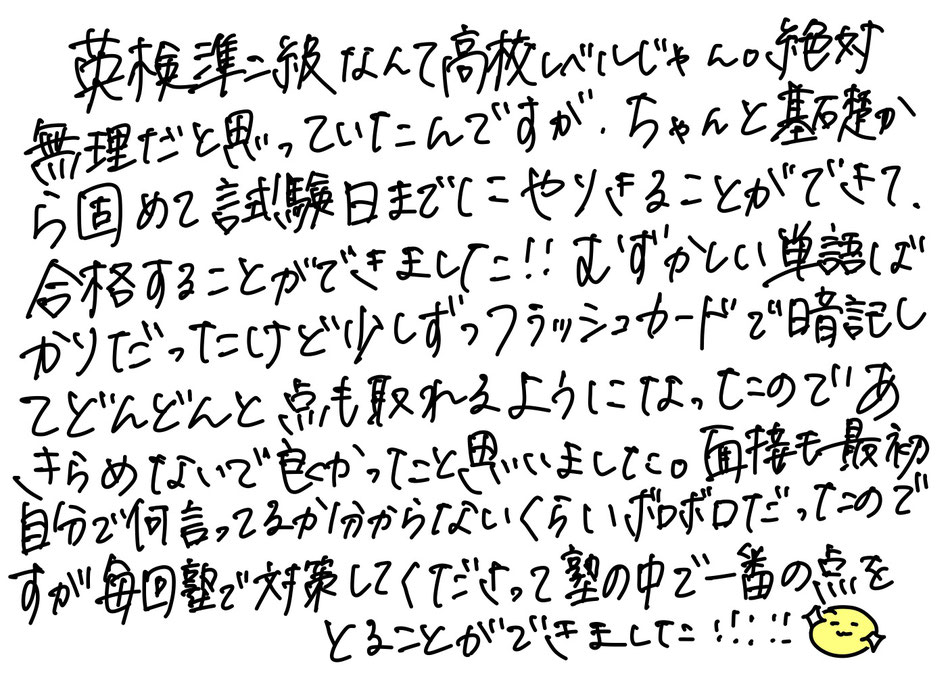 英検準二級なんて高校レベルじゃん。絶対
無理だと思っていたんですが、ちゃんと基礎か
ら固めて試験日までにやりきることができて、
合格することができました!!むずかしい単語ば
かりだったけど少しずつフラッシュカードで暗記し
てどんどんと点も取れるようになったのであ
きらめないで良かったと思いました。面接も最初
自分で何言ってるか分からないくらいボロボロだったので
すが毎回塾で対策してくださって塾の中で一番の点を
とることができました!!!!